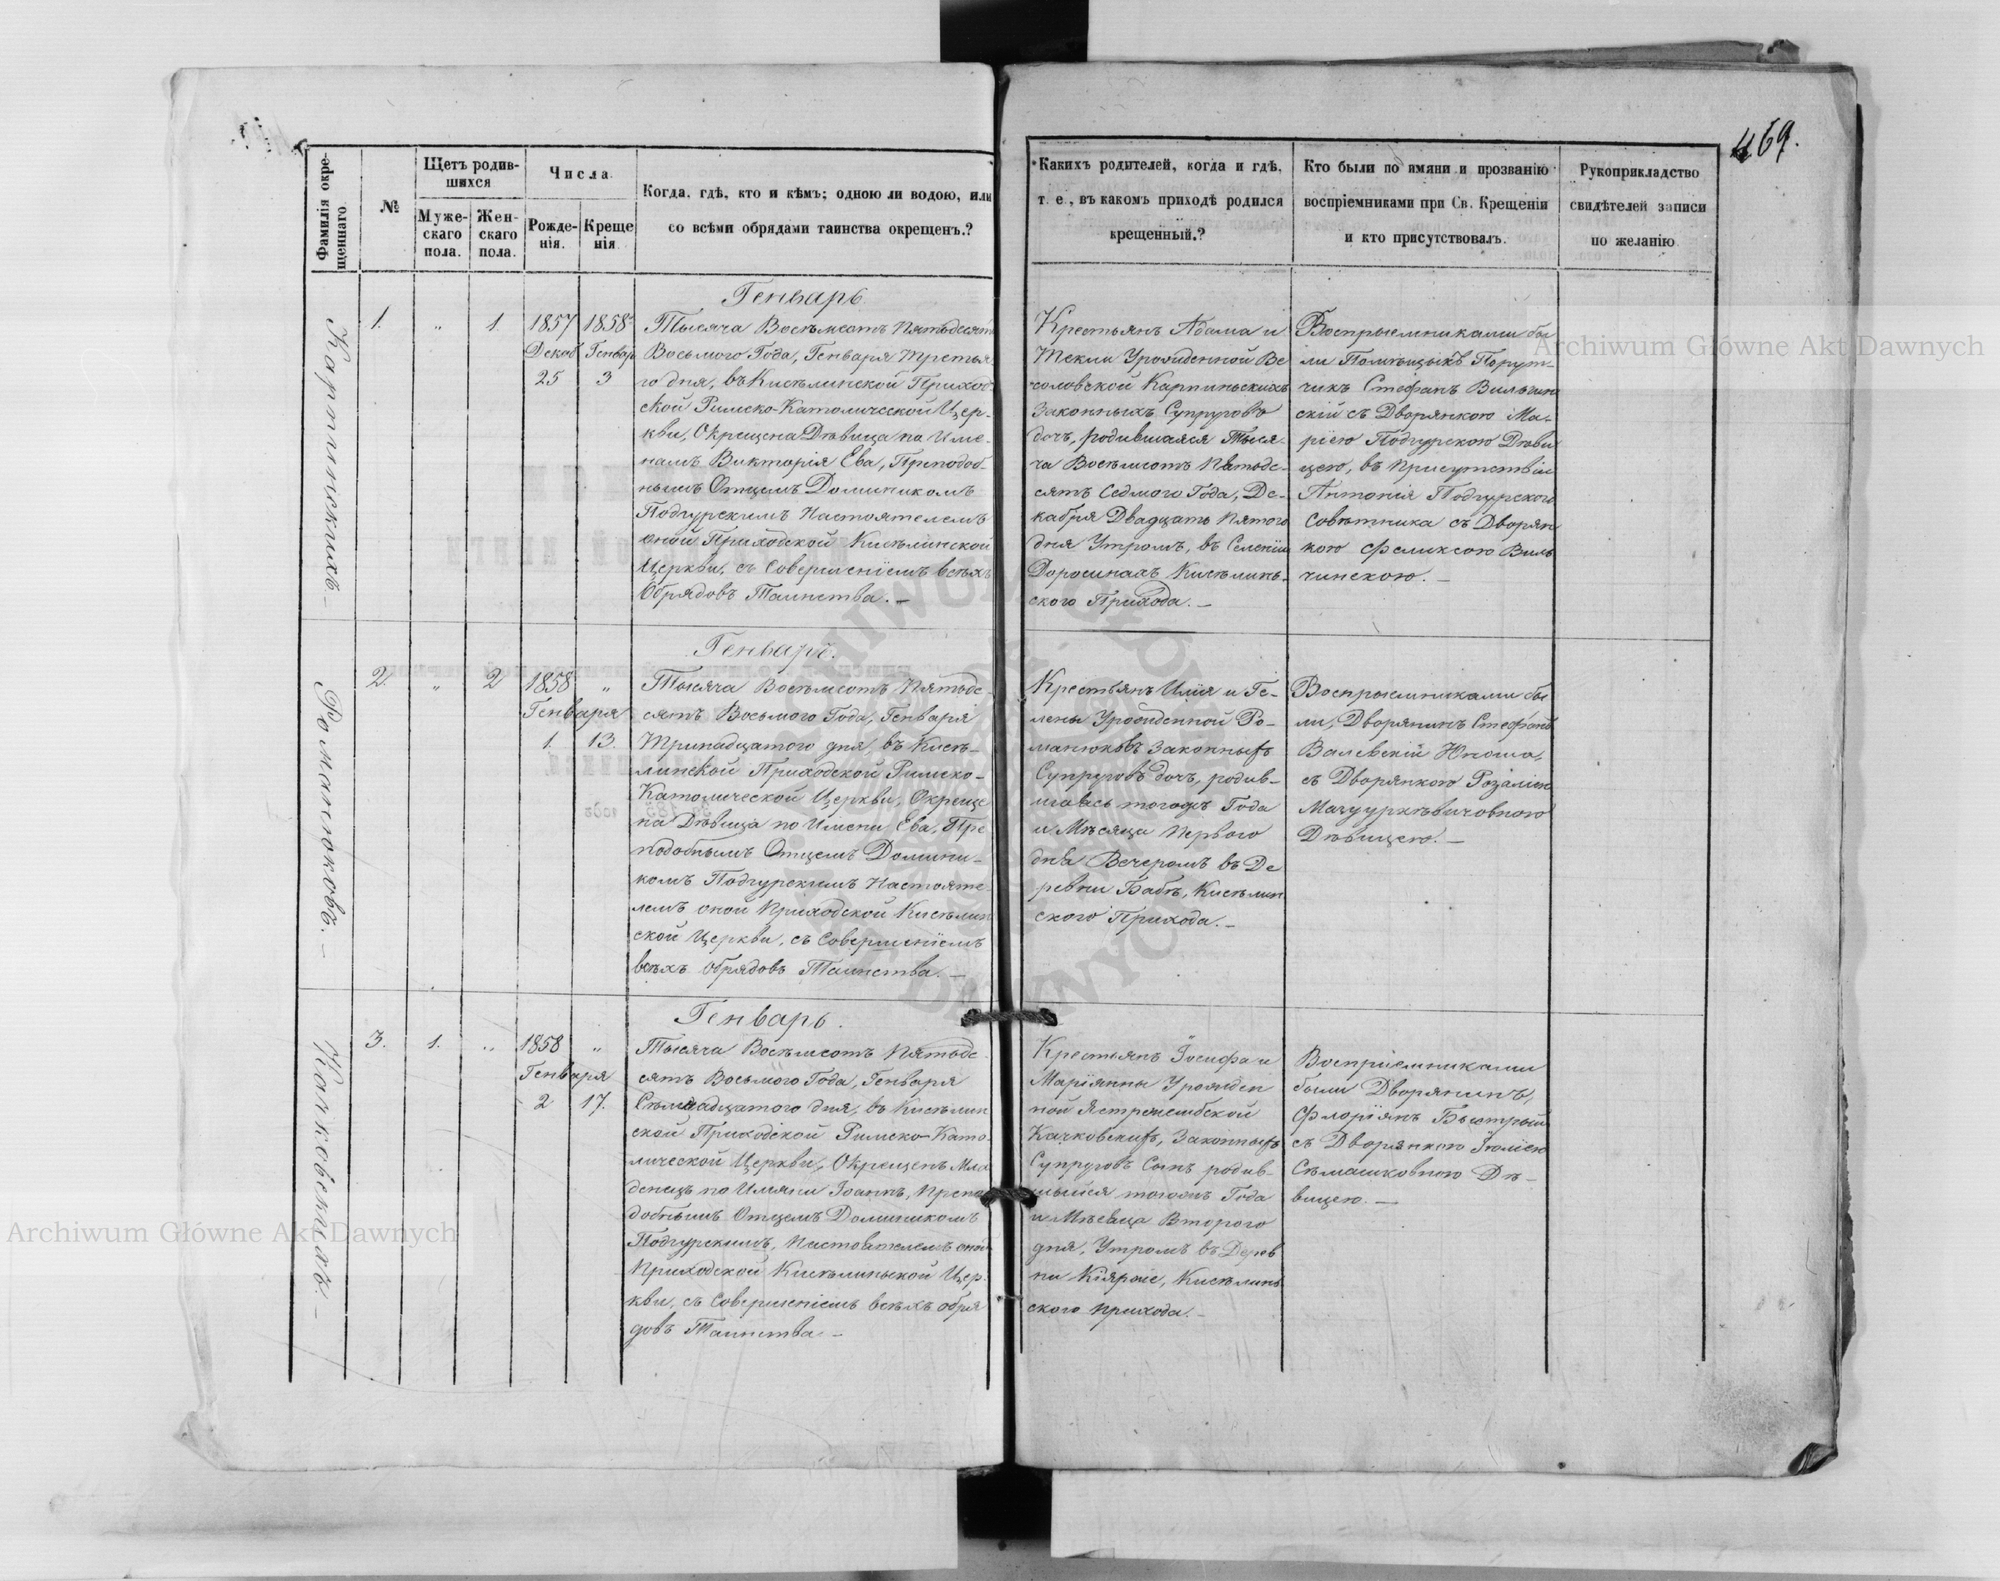 469.
Фамилія окре-
щеннаго
№
Щетъ родив-
шихся
Муже-
скаго
пола.
Жен-
скаго
пола.
Числа
Рожде-
нія.
Креще
нія
Когда, гдѣ, кто и кѣмъ; одною ли водою, или
со всѣми обрядами таинства окрещенъ.?
Какихъ родителей, когда и гдѣ,
т. е., въ какомъ приходѣ родился
крещенный.?
Кто были по имяни и прозванію
воспріемниками при Св. Крещеніи
и кто присутствовалъ.
Рукоприкладство
свидѣтелей записи
по желанію
Карпинскихъ.—
1. „ 1.
1857 1858
Декаб Генвар
25 3
Генварь
Тысяча Восѣмсотъ Пятьдесятъ
Восьмого Года, Генваря Третья
го дня, въ Кисѣлинской Приход
ской Римско-Католической Цер-
кви, Окрещена Дѣвица по Име-
намъ Викторія Ева, Преподоб-
нымъ Отцемъ Доминикомъ
Подгурскимъ Настоятелемъ
оной Приходской Кисѣлинской
Церкви, съ Совершеніемъ всѣхъ
Обрядовъ Таинства.—
Крестьянъ Адама и
Текли Урожденной Ве
соловской Карпинскихъ
Законныхъ Супруговъ
дочъ, родившаяся Тыся-
ча Восѣмсотъ Пятьде-
сятъ Седмого Года, Де-
кабря Двадцать Пятого
дня Утромъ, въ Селеніи
Доросинахъ Кисѣлинь-
ского Прихода.—
Воспрыемниками бы-
ли Помѣщыкъ Порут-
чикъ Стефанъ Вильчин
скій съ Дворянкою Ма-
ріею Подгурскою Дѣви
цею, въ присутствіи
Антонія Подгурского
Совѣтника съ Дворян
кою Феликсою Виль
чинскою.—
Романюковъ.—
2. „ 2
1858 „
Генваря
1. 13.
Генварь.
Тысяча Восѣмсотъ Пятьде-
сятъ Восьмого Года, Генваря
Тринадцатого дня, въ Кисѣ-
линской Приходской Римско-
Католической Церкви, Окреще
на Дѣвица по Имени Ева, Пре
подобнымъ Отцемъ Домини-
комъ Подгурскимъ Настояте
лемъ оной Приходской Кисѣлин
ской Церкви, съ Совершеніемъ
всѣхъ обрядовъ Таинства.—
Крестьянъ Илія и Ге-
лены Урожденной Ро-
манюковъ Законныхъ
Супруговъ дочъ, родив-
шаясь тогожъ Года
и Мѣсяца Первого
дня Вечеромъ въ Де
ревни Бабѣ, Кисѣлин
ского Прихода.—
Воспрыемниками бы
ли, Дворянинъ Стефанъ
Валевскій Юноша,
съ Дворянкою Розаліею
Дѣвицею.—
Качковскихъ.—
3. 1. „
1858 „
Генваря
2 17.
Генварь.
Тысяча Восѣмсотъ Пятьде-
сятъ Восьмого Года, Генваря
Сѣмнадцатого дня, въ Кисѣлин
ской Приходской Римско-Като
лической Церкви, Окрещенъ Мла
денецъ по Имяни Іоаннъ, Препо
добнымъ Отцемъ Доминикомъ
Подгурскимъ, Настоятелемъ оной
Приходской Кисѣлинской Цер-
кви, съ Совершеніемъ всѣхъ обря
довъ Таинства.—
Крестьянъ Іосифа и
Маріянны Урожден
ной Ястржембской
Качковскихъ, Законныхъ
Супруговъ Сынъ родив-
шыйся тогожъ Года
и Мѣсяца Второго
дня, Утромъ въ Дерев
ни, Кисѣлинь
ского прихода.—
Воспріемниками
были Дворянинъ,
Флоріянъ Быстрый
съ Дворянкою Юліею
Сѣмашковною Дѣ-
вицею.—
Archiwum Główne Akt Dawnych
Archiwum Główne Akt Dawnych